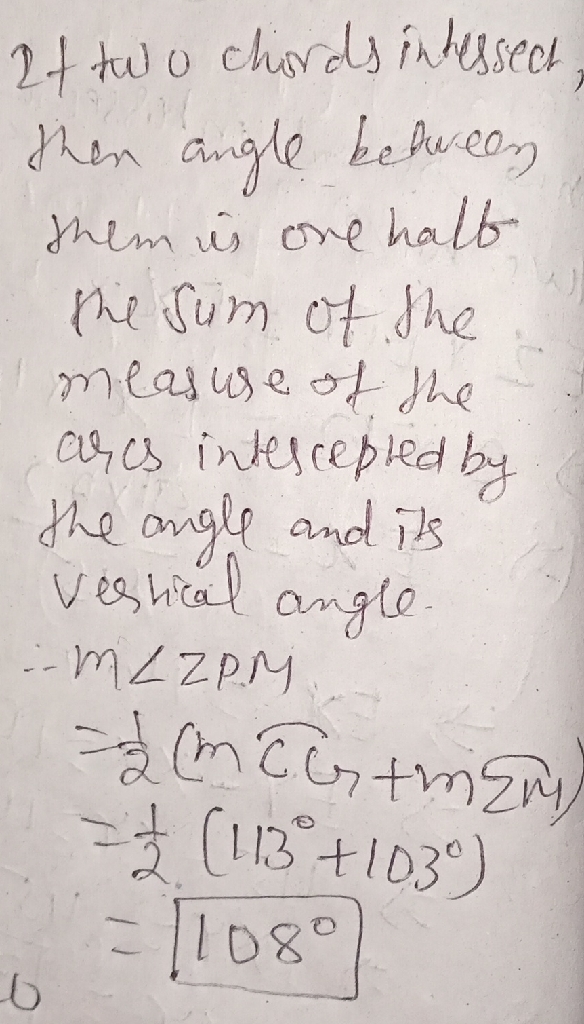 If two chords intersect,
then angle between
them is one half
the sum of the
measure of the
arcs intercepted by
the angle and its
vertical angle.
∴ m∠ZPM
= 1/2 (m CG + m ZM)
= 1/2 (113° + 103°)
= 108°